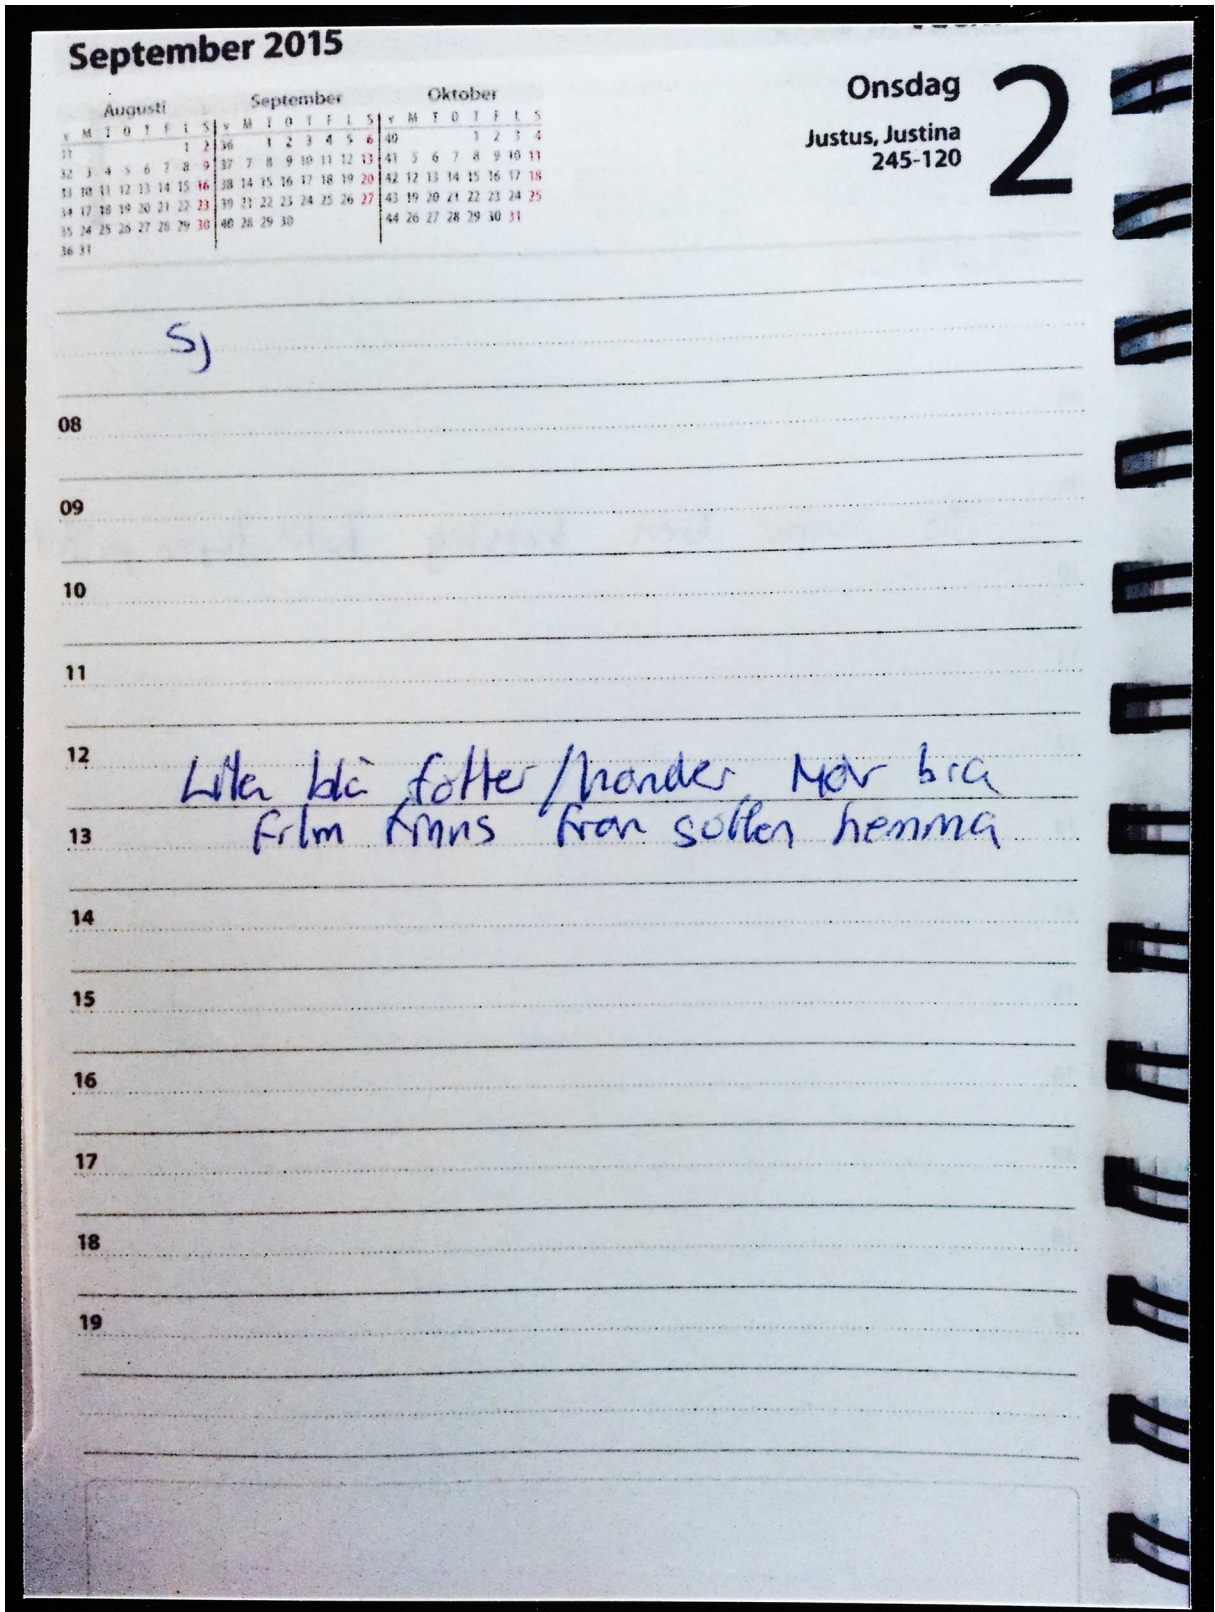 September 2015
Augusti
v M T O T F L S
31 1 2
32 3 4 5 6 7 8 9
33 10 11 12 13 14 15 16
34 17 18 19 20 21 22 23
35 24 25 26 27 28 29 30
36 31
September
v M T O T F L S
36 1 2 3 4 5 6
37 7 8 9 10 11 12 13
38 14 15 16 17 18 19 20
39 21 22 23 24 25 26 27
40 28 29 30
Oktober
v M T O T F L S
40 1 2 3 4
41 5 6 7 8 9 10 11
42 12 13 14 15 16 17 18
43 19 20 21 22 23 24 25
44 26 27 28 29 30 31
Onsdag
2
Justus, Justina
245-120
Sj
08
09
10
11
12
blå fötter/händer Mår bra
13
Film finns från hemma
14
15
16
17
18
19